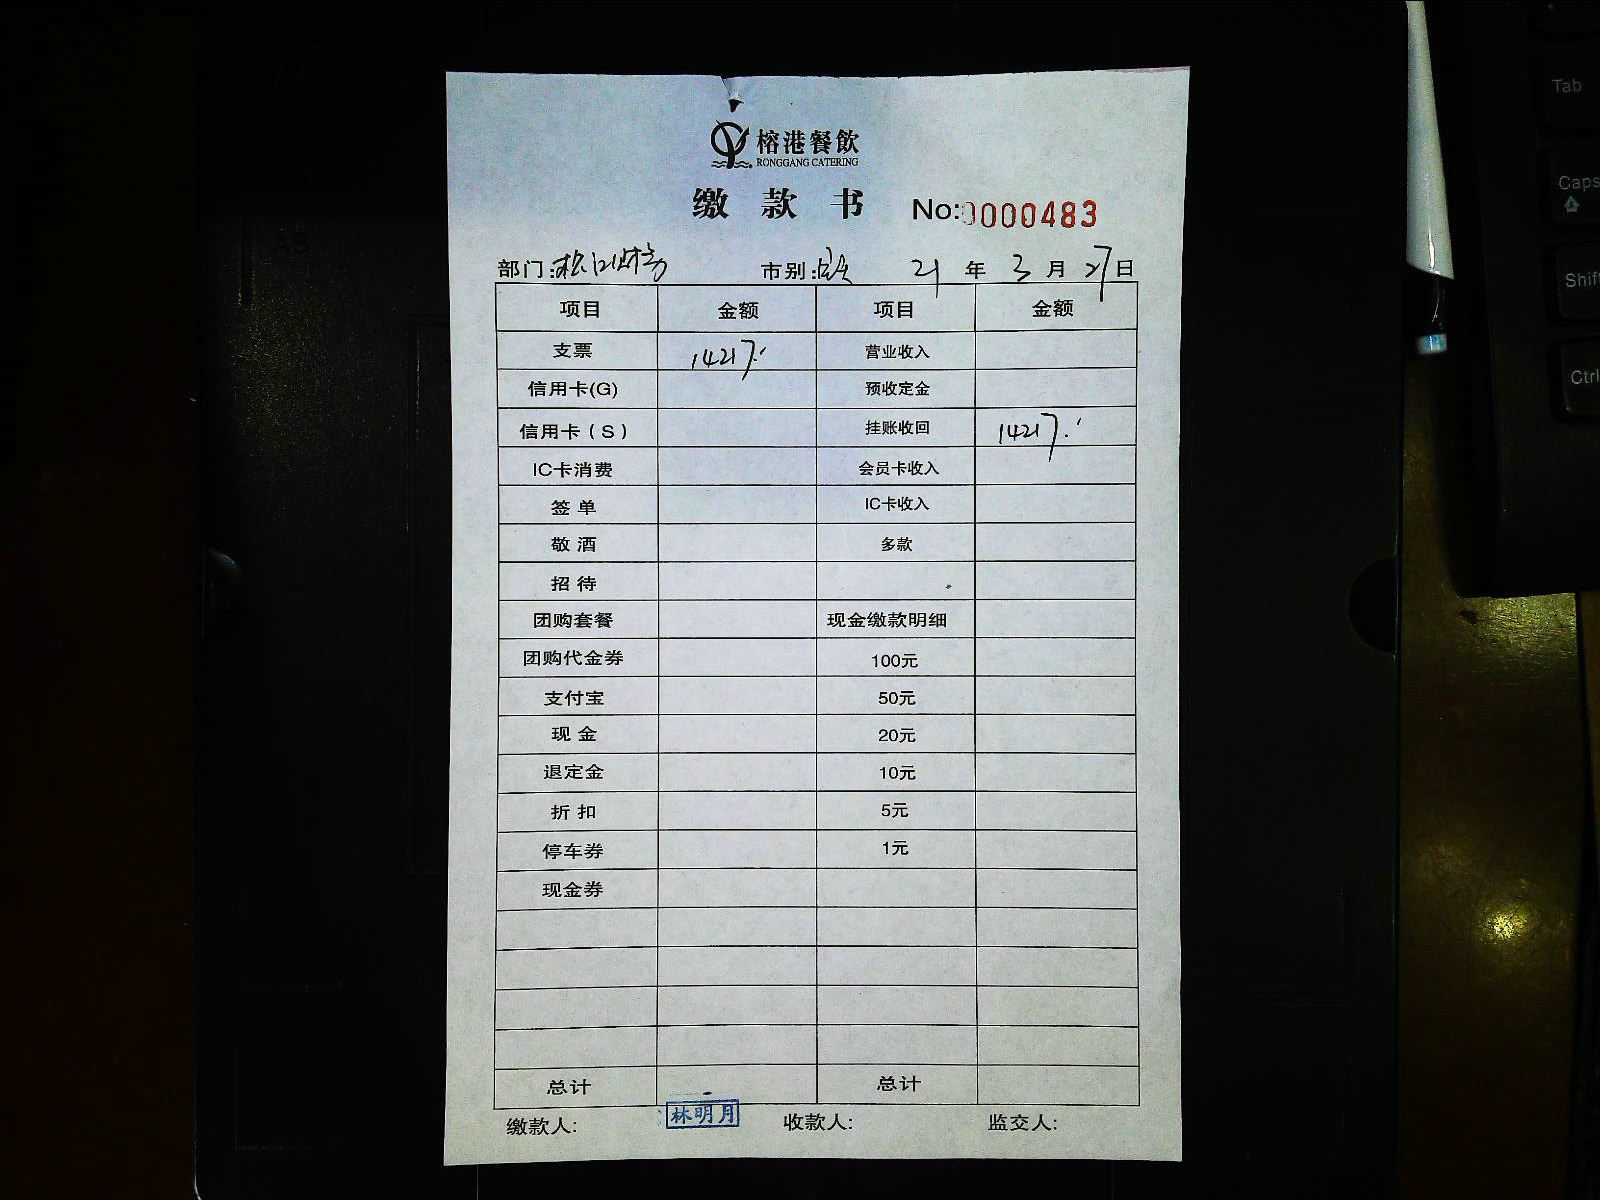 榕港餐飲
RONGGANG CATERING
缴款书 No:0000483
部门:松江财务 市别: 21年3月27日
项目 金额 项目 金额
支票 14217.- 营业收入
信用卡(G) 预收定金
信用卡(S) 挂账收回 14217.-
IC卡消费 会员卡收入
签单 IC卡收入
敬酒 多款
招待
团购套餐 现金缴款明细
团购代金券 100元
支付宝 50元
现金 20元
退定金 10元
折扣 5元
停车券 1元
现金券
总计 总计
缴款人: 林明月 收款人: 监交人:
Tab
Caps
Shift
Ctrl